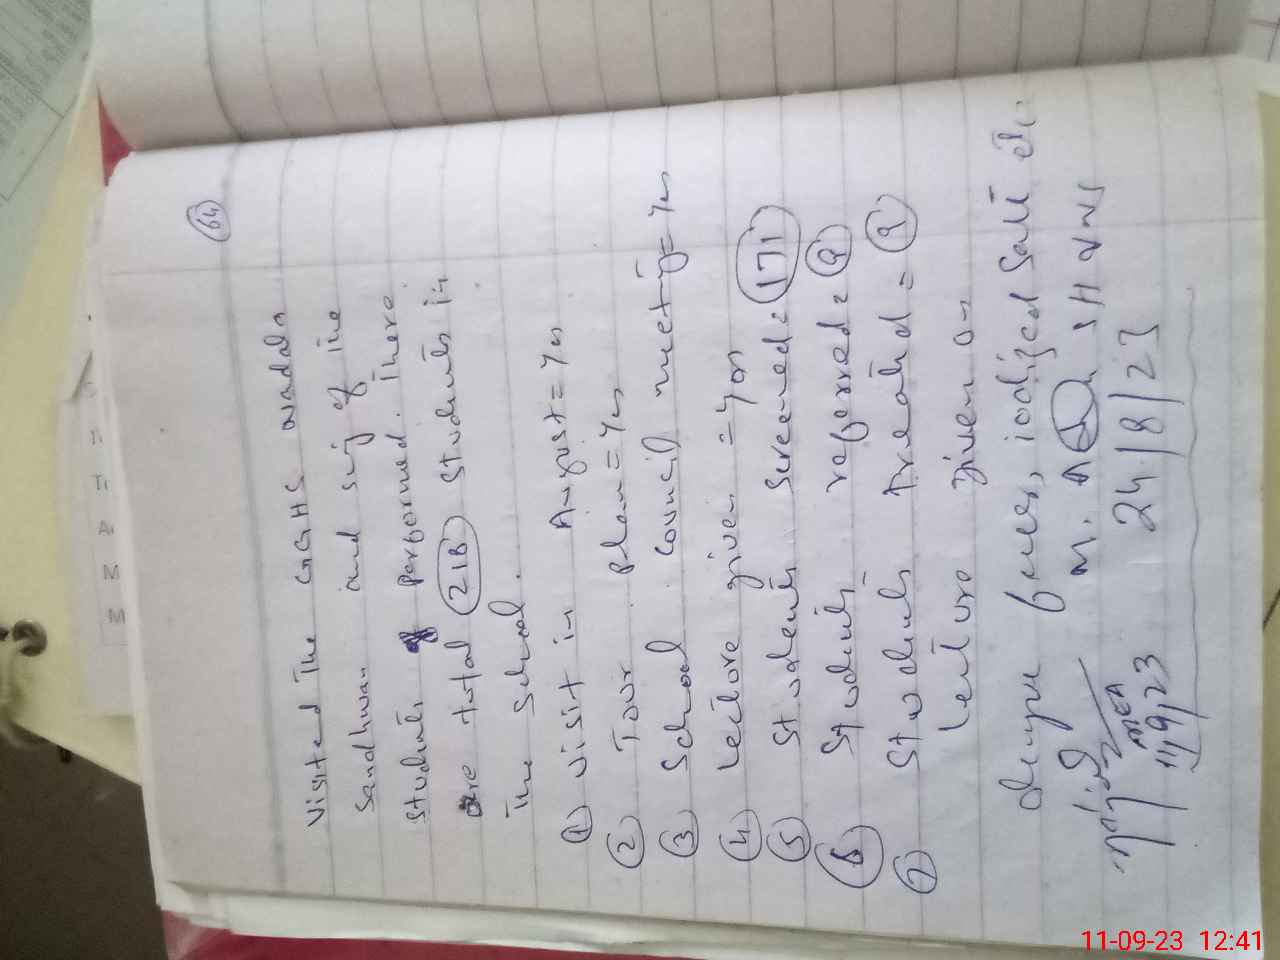 64
Visited the GGHS Wadala
Sandhwan and Scrg of the
students performed. There
are total 218 students in
the school.
① Visit in August = Yes
② Tour plan = Yes
③ School council meeting = Yes
④ Lecture given = Yes
⑤ Students screened = 171
⑥ Students referred = 9
⑦ Students treated = 9
Lecture given on
dengue fever, iodized salt etc.
24/8/23
11/9/23
11-09-23 12:41